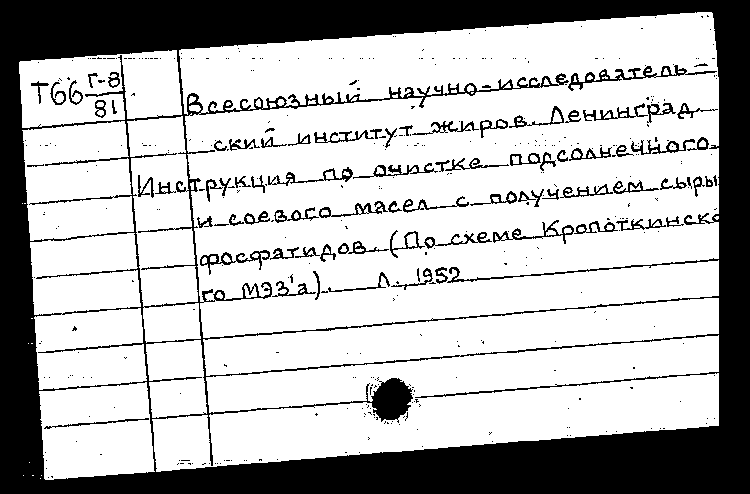 Т66 Г-8/81
Всесоюзный научно-исследователь-
ский институт жиров. Ленинград.
Инструкция по очистке подсолнечного
и соевого масел с получением сыры
фосфатидов. (По схеме Кропоткинско
го МЭЗ'а). Л., 1952